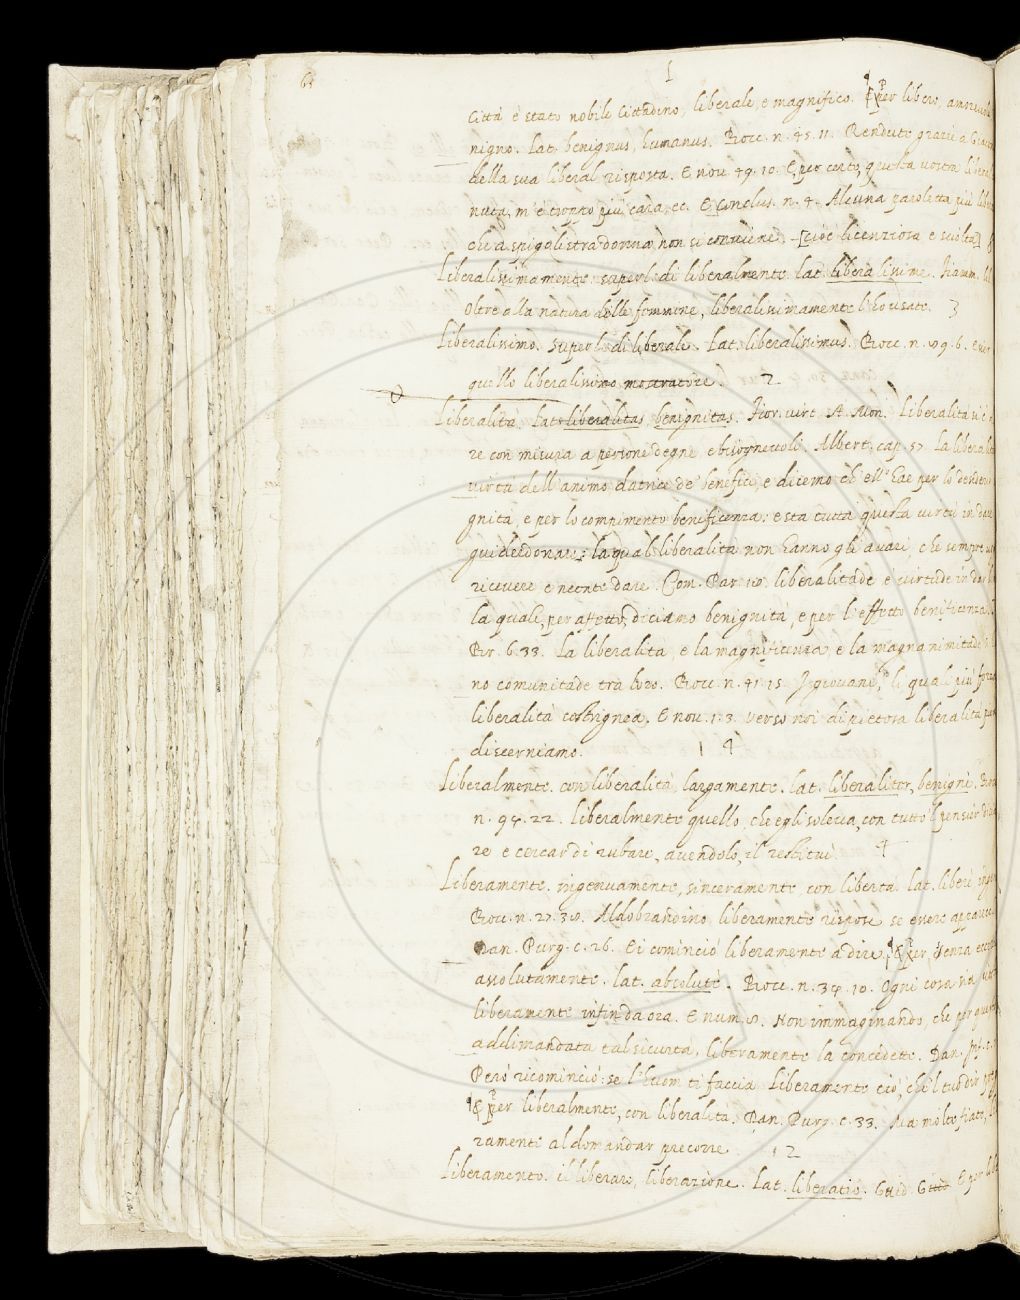 città è stato nobile Cittadino, liberale, e magnifico. § per libero, amorevole
nigno. Lat. benignus, humanus. Bocc. n. 45. 11. Rendute grazie a
della sua liberal risposta. E nov. 49. 10. E per certo, questa vostra
nuta, m'è troppo più cara, ec. E Conclus. n. 4. Alcuna paroletta più
che a spigolistra donna non si conviene. [cioè licenziosa e sciolta]
Liberalissimamente. superl. di liberalmente. Lat. liberalissime. Fiamm.
Oltre alla natura delle femmine, liberalissimamente l'ho usate. 3
Liberalissimo. Superl. di liberale. Lat. liberalissimus. Bocc. n. 99. 6.
quello liberalissimo mostratore. 2
Liberalità. Lat. liberalitas, benignitas. Fior. virt. A. Mon. Liberalità si è
re con misura a persone degne, e bisognevoli. Albert. cap. 57. La
virtù dell'animo datrice de' benefici, e dicemo ch'ell'hae per lo
gnità, e per lo compimento beneficenza: e sta tutta questa virtù in
guiderdonar: la qual liberalità non hanno gli avari, che sempre
ricevere e neente dare. Com. Par. 10. liberalitade è virtude in dar
la quale, per affetto, diciamo benignità, e per l'effetto beneficenza.
Pir. 6. 33. La liberalità, e la magnificenza, e la magnanimitade
no comunitade tra loro. Bocc. n. 41. 15. I giovani, li quali più
liberalità costrignea. E nov. 1. 3. verso noi di pietosa liberalità
discerniamo. 1 4
Liberalmente. con liberalità, largamente. Lat. liberaliter, benignè.
n. 94. 22. liberalmente quello, che egli soleva, con tutto 'l pensier
re e cercar di rubare, avendolo, il restituì. 4
Liberamente. ingenuamente, sinceramente con libertà. Lat. liberè
Bocc. n. 27. 38. Aldobrandino liberamente rispose se essere
Dan. Purg. c. 26. Ei cominciò liberamente a dire. § Per senza
assolutamente. Lat. absolutè. Bocc. n. 34. 10. Ogni cosa sia
liberamente infin da ora. E num. 8. Non immaginando, che per
addimandata tal sicurtà, liberamente la concedette. Dan. Inf.
Però ricominciò: se l'huom ti faccia Liberamente ciò, che 'l tuo dir
§ per liberalmente, con liberalità. Dan. Purg. c. 33. Ma molte fiate,
ramente al domandar precorre. 1 2
Liberamento. il liberare, liberazione. Lat. liberatio. Guid. G. E per